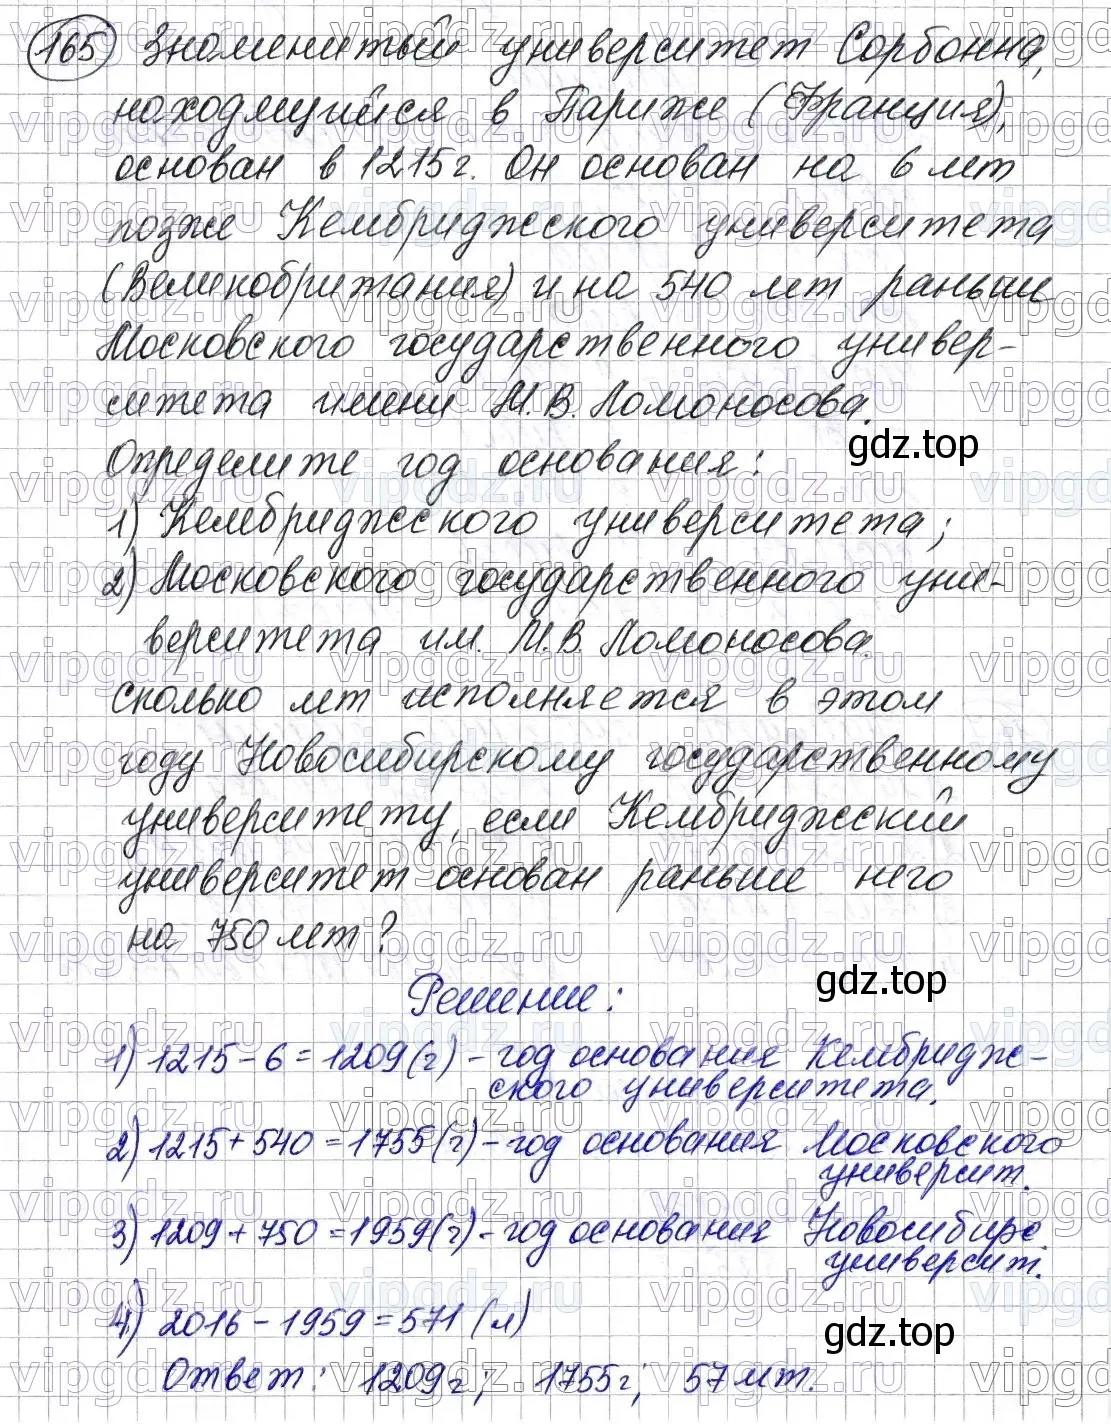 165 Знаменитый университет Сорбонна,
находящийся в Париже (Франция),
основан в 1215 г. Он основан на 6 лет
позже Кембриджского университета
(Великобритания) и на 540 лет раньше
Московского государственного универ-
ситета имени М.В. Ломоносова.
gdz.top
Определите год основания:
1) Кембриджского университета;
2) Московского государственного уни-
верситета им. М.В. Ломоносова.
Сколько лет исполняется в этом
году Новосибирскому государственному
университету, если Кембриджский
университет основан раньше него
на 750 лет?
gdz.top
Решение:
1) 1215 - 6 = 1209 (г) - год основания Кембридж-
ского университета.
2) 1215 + 540 = 1755 (г) - год основания Московского
университ.
3) 1209 + 750 = 1959 (г) - год основания Новосибирс.
университ.
4) 2016 - 1959 = 571 (л)
gdz.top
Ответ: 1209 г; 1755 г; 57 лет.